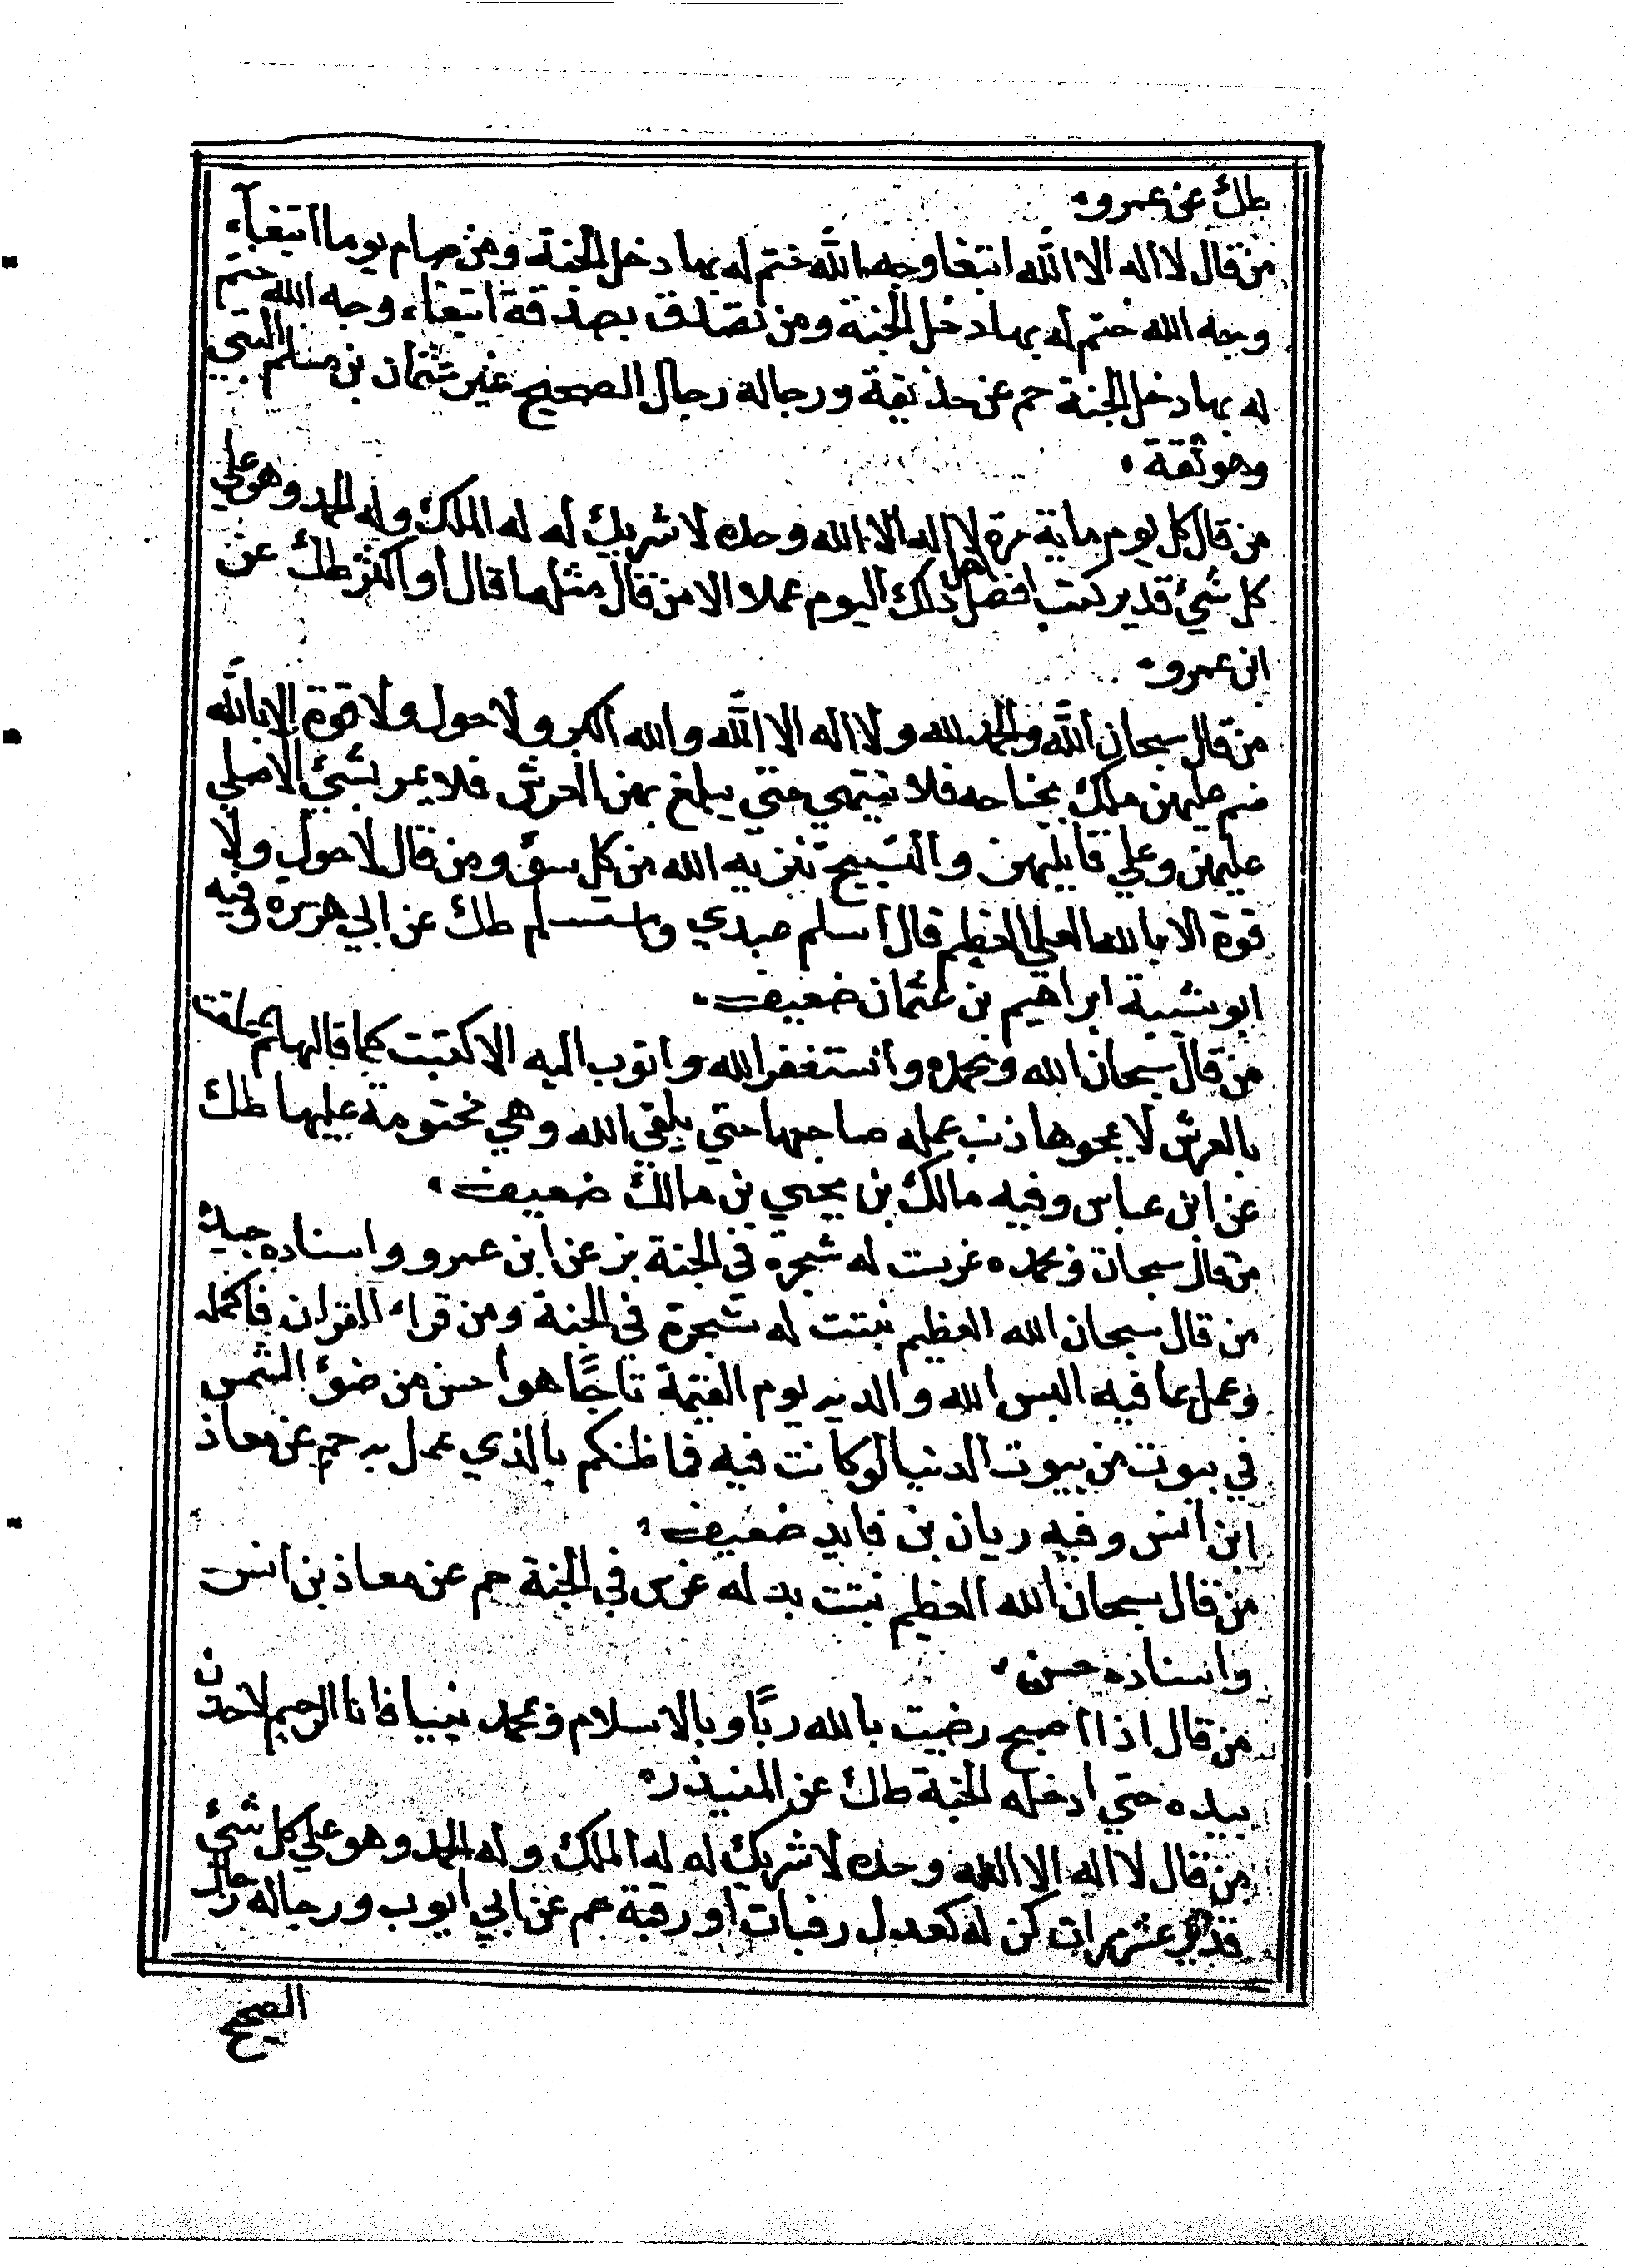 طك عن عمرو
من قال لا اله الا الله ابتغا وجه الله ختم له بها دخل الجنة ومن صام يوما ابتغاء
وجه الله ختم له بها دخل الجنة ومن تصدق بصدقة ابتغاء وجه الله ختم
له بها دخل الجنة حم عن حذيفة ورجاله رجال الصحيح غير عثمان بن مسلم البتي
وهو ثقة
من قال كل يوم ماية مرة لا اله الا الله وحده لا شريك له له الملك وله الحمد وهو علي
كل شئ قدير كتب افضل اهل ذلك اليوم عملا الا من قال مثل ما قال أو اكثر طك عن
ابن عمرو
من قال سبحان الله والحمد لله ولا اله الا الله والله اكبر ولا حول ولا قوة الا بالله
ضم عليهن ملك بجناحه فلا ينتهي حتي يبلغ بهن العرش فلا يمر بشئ الا صلي
عليهن وعلي قايليهن والتسبيح تنزيه الله من كل سوء ومن قال لا حول ولا
قوة الا بالله العلي العظيم قال أسلم عبدي واستسلم طك عن ابي هريره وفيه
ابو شيبة ابراهيم بن عثمان ضعيف
من قال سبحان الله وبحمده واستغفر الله واتوب اليه الا كتبت كما قالها ثم علقت
بالعرش لا يمحوها ذنب عمله صاحبها حتي يلقي الله وهي مختومة عليها طك
عن ابن عباس وفيه مالك بن يحيي بن مالك ضعيف
من قال سبحان وبحمده غرست له شجرة في الجنة بز عن ابن عمرو واسناده جيد
من قال سبحان الله العظيم نبتت له شجرة في الجنة ومن قراء القران فاكمله
وعمل بما فيه البس الله والديه يوم القيمة تاجًا هو احسن من ضوء الشمس
في بيوت من بيوت الدنيا لو كانت فيه فما ظنكم بالذي عمل به حم عن معاذ
ابن انس وفيه زبان بن فايد ضعيف
من قال سبحان الله العظيم نبتت به له غرس في الجنة حم عن معاذ بن انس
واسناده حسن
من قال اذا اصبح رضيت بالله ربًا وبالاسلام وبمحمد نبيا فانا الزعيم لاخذن
بيده حتي ادخله الجنة طك عن المنيذر
من قال لا اله الا الله وحده لا شريك له له الملك وله الحمد وهو علي كل شئ
قدير عشر مرات كن له كعدل رقبات أو رقبة حم عن ابي أيوب ورجاله رجال
الصحيح